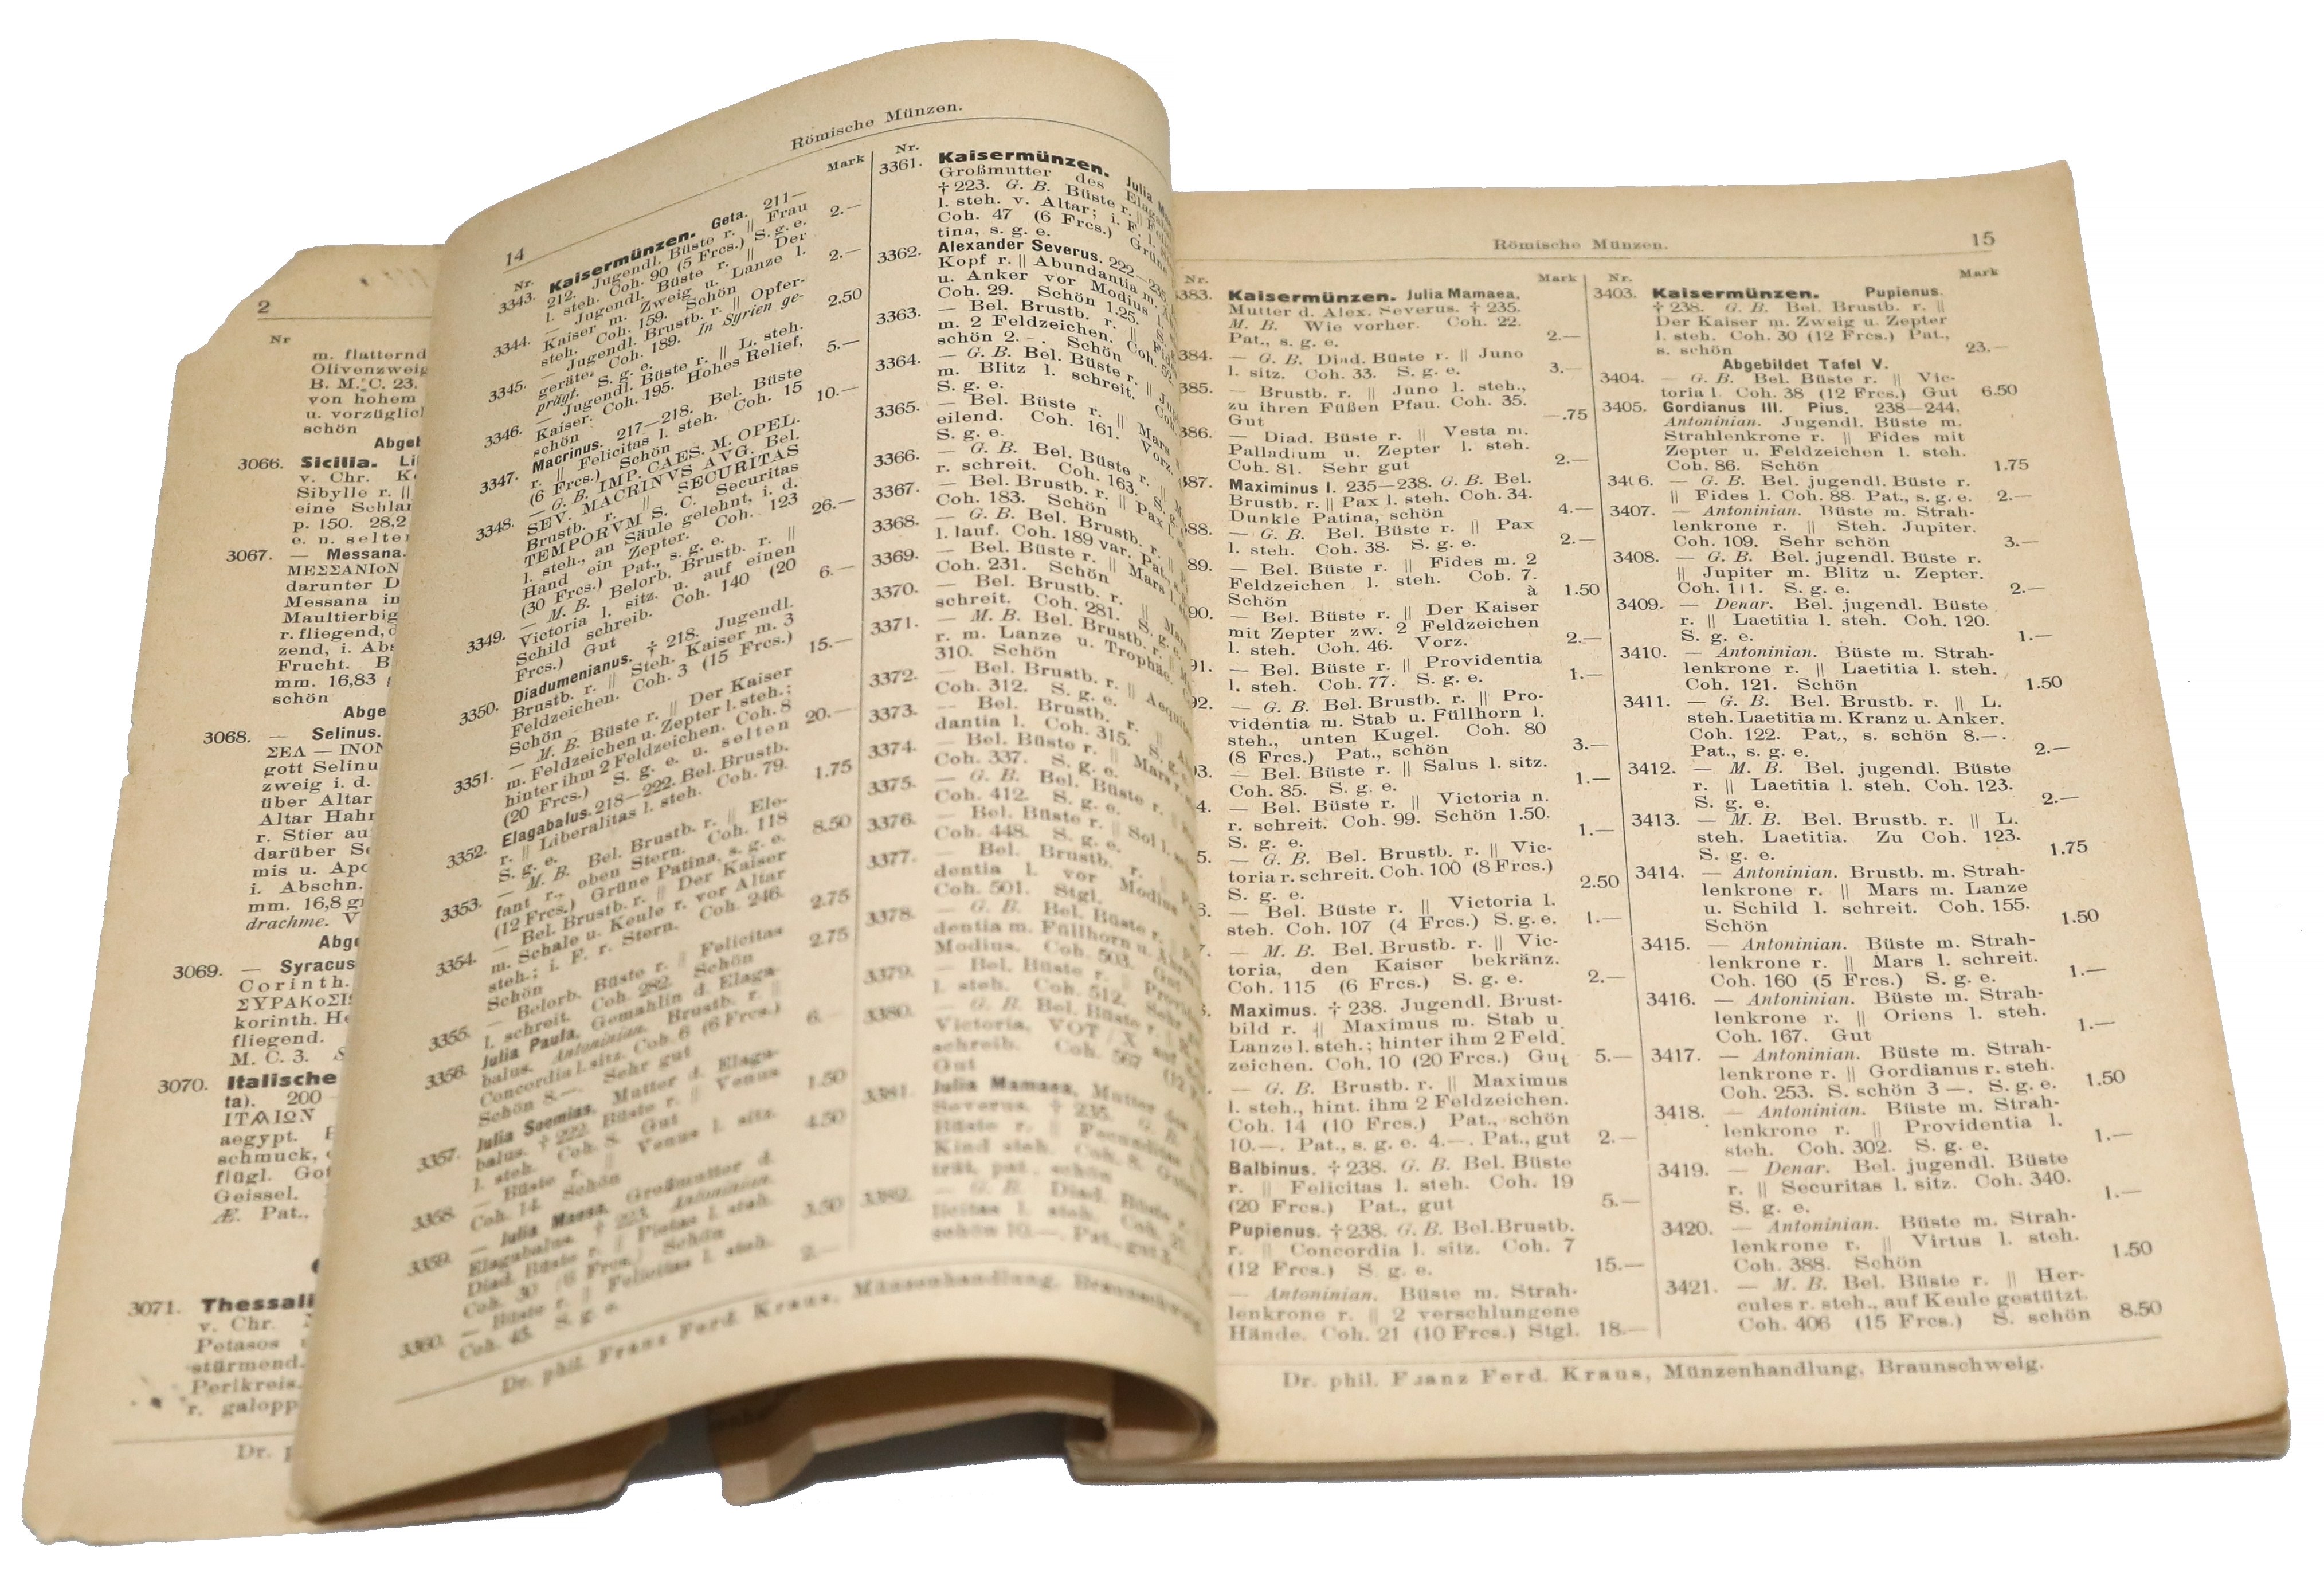 2
Nr
m. flatternd
Olivenzweig
B. M. C. 23.
von hohem
u. vorzüglich
schön
3066. Sicilia. Li
v. Chr.
Sibylle r. ||
eine Schlan
p. 150. 28,2
e. u. selten
3067. — Messana.
ΜΕΣΣΑΝΙοΝ
darunter D
Messana in
Maultierbig
r. fliegend,
zend, i. Abs
Frucht. B
mm. 16,83
schön
3068. — Selinus.
ΣΕΛ — ΙΝΟΝ
gott Selinu
zweig i. d.
über Altar
Altar Hahn
r. Stier au
darüber Se
mis u. Apo
i. Abschn.
mm. 16,8 gr
drachme. V
3069. — Syracus
Corinth.
korinth. He
fliegend.
M. C. 3.
3070. Italische
ta). 200
aegypt.
schmuck,
flügl. Got
Geissel.
Æ. Pat.,
3071. Thessali
v. Chr.
Petasos
stürmend.
Perikreis.
r. galopp
14
Römische Münzen.
Nr. Mark
3343. Kaisermünzen. Geta. 211—
212. Jugendl. Büste r. || Frau
l. steh. Coh. 90 (5 Frcs.) S. g. e. 2.—
3344. — Jugendl. Büste r. || Der
Kaiser m. Zweig u. Lanze l.
steh. Coh. 159. Schön 2.—
3345. — Jugendl. Brustb. r. || Opfer-
geräte. Coh. 189. In Syrien ge-
prägt. S. g. e. 2.50
3346. — Jugendl. Büste r. || L. steh.
Kaiser. Coh. 195. Hohes Relief,
schön 5.—
3347. Macrinus. 217—218. Bel. Büste
r. || Felicitas l. steh. Coh. 15
(6 Frcs.) Schön 10.—
3348. — G. B. IMP. CAES. M. OPEL.
SEV. MACRINVS AVG. Bel.
Brustb. r. || SECURITAS
TEMPORVM S. C. Securitas
l. steh., an Säule gelehnt, i. d.
Hand ein Zepter. Coh. 123
(30 Frcs.) Pat., s. g. e. 26.—
3349. — M. B. Belorb. Brustb. r. ||
Victoria l. sitz. u. auf einen
Schild schreib. Coh. 140 (20
Frcs.) Gut 6.—
3350. Diadumenianus. † 218. Jugendl.
Brustb. r. || Steh. Kaiser m. 3
Feldzeichen. Coh. 3 (15 Frcs.)
Schön 15.—
3351. — M. B. Büste r. || Der Kaiser
m. Feldzeichen u. Zepter l. steh.;
hinter ihm 2 Feldzeichen. Coh. 8
(20 Frcs.) S. g. e. u. selten 20.—
3352. Elagabalus. 218—222. Bel. Brustb.
r. || Liberalitas l. steh. Coh. 79.
S. g. e. 1.75
3353. — M. B. Bel. Brustb. r. || Ele-
fant r., oben Stern. Coh. 118
(12 Frcs.) Grüne Patina, s. g. e. 8.50
3354. — Bel. Brustb. r. || Der Kaiser
m. Schale u. Keule r. vor Altar
steh.; i. F. r. Stern. Coh. 246.
Schön 2.75
3355. — Belorb. Büste r. || Felicitas
l. schreit. Coh. 282. Schön 2.75
3356. Julia Paula, Gemahlin d. Elaga-
balus. Antoninian. Brustb. r. ||
Concordia l. sitz. Coh. 6 (6 Frcs.)
Schön 8.—. Sehr gut 6.—
3357. Julia Soemias. Mutter d. Elaga-
balus. † 222. Büste r. || Venus
l. steh. Coh. 8. Gut 1.50
3358. — Büste r. || Venus l. sitz.
Coh. 14. Schön 4.50
3359. — Julia Maesa. Großmutter d.
Elagabalus. † 223. Antoninian.
Diad. Büste r. || Pietas l. steh.
Coh. 30 (6 Frcs.) Schön 3.50
3360. — Büste r. || Felicitas l. steh.
Coh. 45. S. g. e. 2.—
Nr.
3361. Kaisermünzen. Julia
Großmutter des
† 223. G. B. Büste r. ||
l. steh. v. Altar; i. F. l.
Coh. 47 (6 Frcs.) Grüne
tina, s. g. e.
3362. Alexander Severus. 222—235
Kopf r. || Abundantia m.
u. Anker vor Modius l.
Coh. 29. Schön 1.25.
3363. — Bel. Brustb. r. ||
m. 2 Feldzeichen. Coh. 52.
schön 2.—. Schön
3364. — G. B. Bel. Büste r. ||
m. Blitz l. schreit.
S. g. e.
3365. — Bel. Büste r. || Mars
eilend. Coh. 161. Vorz.
S. g. e.
3366. — G. B. Bel. Büste r. ||
r. schreit. Coh. 163.
3367. — Bel. Brustb. r. || Pax l.
Coh. 183. Schön
3368. — G. B. Bel. Brustb. r.
l. lauf. Coh. 189 var. Pat.,
3369. — Bel. Büste r. || Mars l.
Coh. 231. Schön
3370. — Bel. Brustb. r. ||
schreit. Coh. 281. S. g.
3371. — M. B. Bel. Brustb. r. ||
r. m. Lanze u. Trophäe.
310. Schön
3372. — Bel. Brustb. r. || Aequi
Coh. 312. S. g. e.
3373. — Bel. Brustb. r.
dantia l. Coh. 315. S. g.
3374. — Bel. Büste r. || Mars r.
Coh. 337. S. g. e.
3375. — G. B. Bel. Büste r.
Coh. 412. S. g. e.
3376. — Bel. Büste r. || Sol l.
Coh. 448. S. g. e.
3377. — Bel. Brustb. r.
dentia l. vor Modius
Coh. 501. Stgl.
3378. — G. B. Bel. Büste r.
dentia m. Füllhorn u.
Modius. Coh. 503. Gut
3379. — Bel. Büste r. || Provi
l. steh. Coh. 512. Sehr
3380. — G. B. Bel. Büste r.
Victoria, VOT / X auf
schreib. Coh. 567
Gut
3381. Julia Mamaea, Mutter des
Severus. † 235. G. B.
Büste r. || Fecunditas
Kind steh. Coh. 8.
trät, pat., schön
3382. — G. B. Diad. Büste r.
licitas l. steh. Coh.
schön 10.—. Pat., gut
Dr. phil. Franz Ferd. Kraus, Münzenhandlung, Braunschweig.
Römische Münzen. 15
Nr. Mark
383. Kaisermünzen. Julia Mamaea,
Mutter d. Alex. Severus. † 235.
M. B. Wie vorher. Coh. 22.
Pat., s. g. e. 2.—
384. — G. B. Diad. Büste r. || Juno
l. sitz. Coh. 33. S. g. e. 3.—
385. — Brustb. r. || Juno l. steh.,
zu ihren Füßen Pfau. Coh. 35.
Gut —.75
386. — Diad. Büste r. || Vesta m.
Palladium u. Zepter l. steh.
Coh. 81. Sehr gut 2.—
387. Maximinus I. 235—238. G. B. Bel.
Brustb. r. || Pax l. steh. Coh. 34.
Dunkle Patina, schön 4.—
88. — G. B. Bel. Büste r. || Pax
l. steh. Coh. 38. S. g. e. 2.—
89. — Bel. Büste r. || Fides m. 2
Feldzeichen l. steh. Coh. 7.
Schön à 1.50
90. — Bel. Büste r. || Der Kaiser
mit Zepter zw. 2 Feldzeichen
l. steh. Coh. 46. Vorz. 2.—
91. — Bel. Büste r. || Providentia
l. steh. Coh. 77. S. g. e. 1.—
92. — G. B. Bel. Brustb. r. || Pro-
videntia m. Stab u. Füllhorn l.
steh., unten Kugel. Coh. 80
(8 Frcs.) Pat., schön 3.—
3. — Bel. Büste r. || Salus l. sitz.
Coh. 85. S. g. e. 1.—
4. — Bel. Büste r. || Victoria n.
r. schreit. Coh. 99. Schön 1.50.
S. g. e. 1.—
5. — G. B. Bel. Brustb. r. || Vic-
toria r. schreit. Coh. 100 (8 Frcs.)
S. g. e. 2.50
6. — Bel. Büste r. || Victoria l.
steh. Coh. 107 (4 Frcs.) S. g. e. 1.—
— M. B. Bel. Brustb. r. || Vic-
toria, den Kaiser bekränz.
Coh. 115 (6 Frcs.) S. g. e. 2.—
Maximus. † 238. Jugendl. Brust-
bild r. || Maximus m. Stab u.
Lanze l. steh.; hinter ihm 2 Feld-
zeichen. Coh. 10 (20 Frcs.) Gut 5.—
— G. B. Brustb. r. || Maximus
l. steh., hint. ihm 2 Feldzeichen.
Coh. 14 (10 Frcs.) Pat., schön
10.—. Pat., s. g. e. 4.—. Pat., gut 2.—
Balbinus. † 238. G. B. Bel. Büste
r. || Felicitas l. steh. Coh. 19
(20 Frcs.) Pat., gut 5.—
Pupienus. † 238. G. B. Bel. Brustb.
r. || Concordia l. sitz. Coh. 7
(12 Frcs.) S. g. e. 15.—
— Antoninian. Büste m. Strah-
lenkrone r. || 2 verschlungene
Hände. Coh. 21 (10 Frcs.) Stgl. 18.—
Nr. Mark
3403. Kaisermünzen. Pupienus.
† 238. G. B. Bel. Brustb. r. ||
Der Kaiser m. Zweig u. Zepter
l. steh. Coh. 30 (12 Frcs.) Pat.,
s. schön 23.—
Abgebildet Tafel V.
3404. — G. B. Bel. Büste r. || Vic-
toria l. Coh. 38 (12 Frcs.) Gut 6.50
3405. Gordianus III. Pius. 238—244.
Antoninian. Jugendl. Büste m.
Strahlenkrone r. || Fides mit
Zepter u. Feldzeichen l. steh.
Coh. 86. Schön 1.75
34 6. — G. B. Bel. jugendl. Büste r.
|| Fides l. Coh. 88. Pat., s. g. e. 2.—
3407. — Antoninian. Büste m. Strah-
lenkrone r. || Steh. Jupiter.
Coh. 109. Sehr schön 3.—
3408. — G. B. Bel. jugendl. Büste r.
|| Jupiter m. Blitz u. Zepter.
Coh. 111. S. g. e. 2.—
3409. — Denar. Bel. jugendl. Büste
r. || Laetitia l. steh. Coh. 120.
S. g. e. 1.—
3410. — Antoninian. Büste m. Strah-
lenkrone r. || Laetitia l. steh.
Coh. 121. Schön 1.50
3411. — G. B. Bel. Brustb. r. || L.
steh. Laetitia m. Kranz u. Anker.
Coh. 122. Pat., s. schön 8.—.
Pat., s. g. e. 2.—
3412. — M. B. Bel. jugendl. Büste
r. || Laetitia l. steh. Coh. 123.
S. g. e. 2.—
3413. — M. B. Bel. Brustb. r. || L.
steh. Laetitia. Zu Coh. 123.
S. g. e. 1.75
3414. — Antoninian. Brustb. m. Strah-
lenkrone r. || Mars m. Lanze
u. Schild l. schreit. Coh. 155.
Schön 1.50
3415. — Antoninian. Büste m. Strah-
lenkrone r. || Mars l. schreit.
Coh. 160 (5 Frcs.) S. g. e. 1.—
3416. — Antoninian. Büste m. Strah-
lenkrone r. || Oriens l. steh.
Coh. 167. Gut 1.—
3417. — Antoninian. Büste m. Strah-
lenkrone r. || Gordianus r. steh.
Coh. 253. S. schön 3 —. S. g. e. 1.50
3418. — Antoninian. Büste m. Strah-
lenkrone r. || Providentia l.
steh. Coh. 302. S. g. e. 1.—
3419. — Denar. Bel. jugendl. Büste
r. || Securitas l. sitz. Coh. 340.
S. g. e. 1.—
3420. — Antoninian. Büste m. Strah-
lenkrone r. || Virtus l. steh.
Coh. 388. Schön 1.50
3421. — M. B. Bel. Büste r. || Her-
cules r. steh., auf Keule gestützt.
Coh. 406 (15 Frcs.) S. schön 8.50
Dr. phil. Franz Ferd. Kraus, Münzenhandlung, Braunschweig.